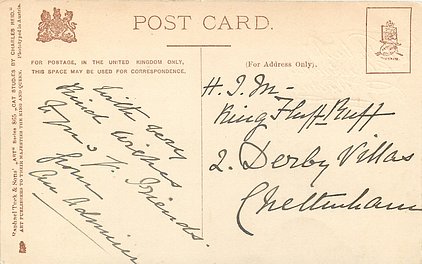 Raphael Tuck & Sons' "ART" Series 855, "CAT STUDIES BY CHARLES REID."
ART PUBLISHERS TO THEIR MAJESTIES THE KING AND QUEEN. Phototyped in Austria.
POST CARD.
FOR POSTAGE, IN THE UNITED KINGDOM ONLY,
THIS SPACE MAY BE USED FOR CORRESPONDENCE.
(For Address Only).
With very
kind wishes
from
an Admirer
H. I. M-
King Fluff Ruff
2. Derby Villas
Cheltenham